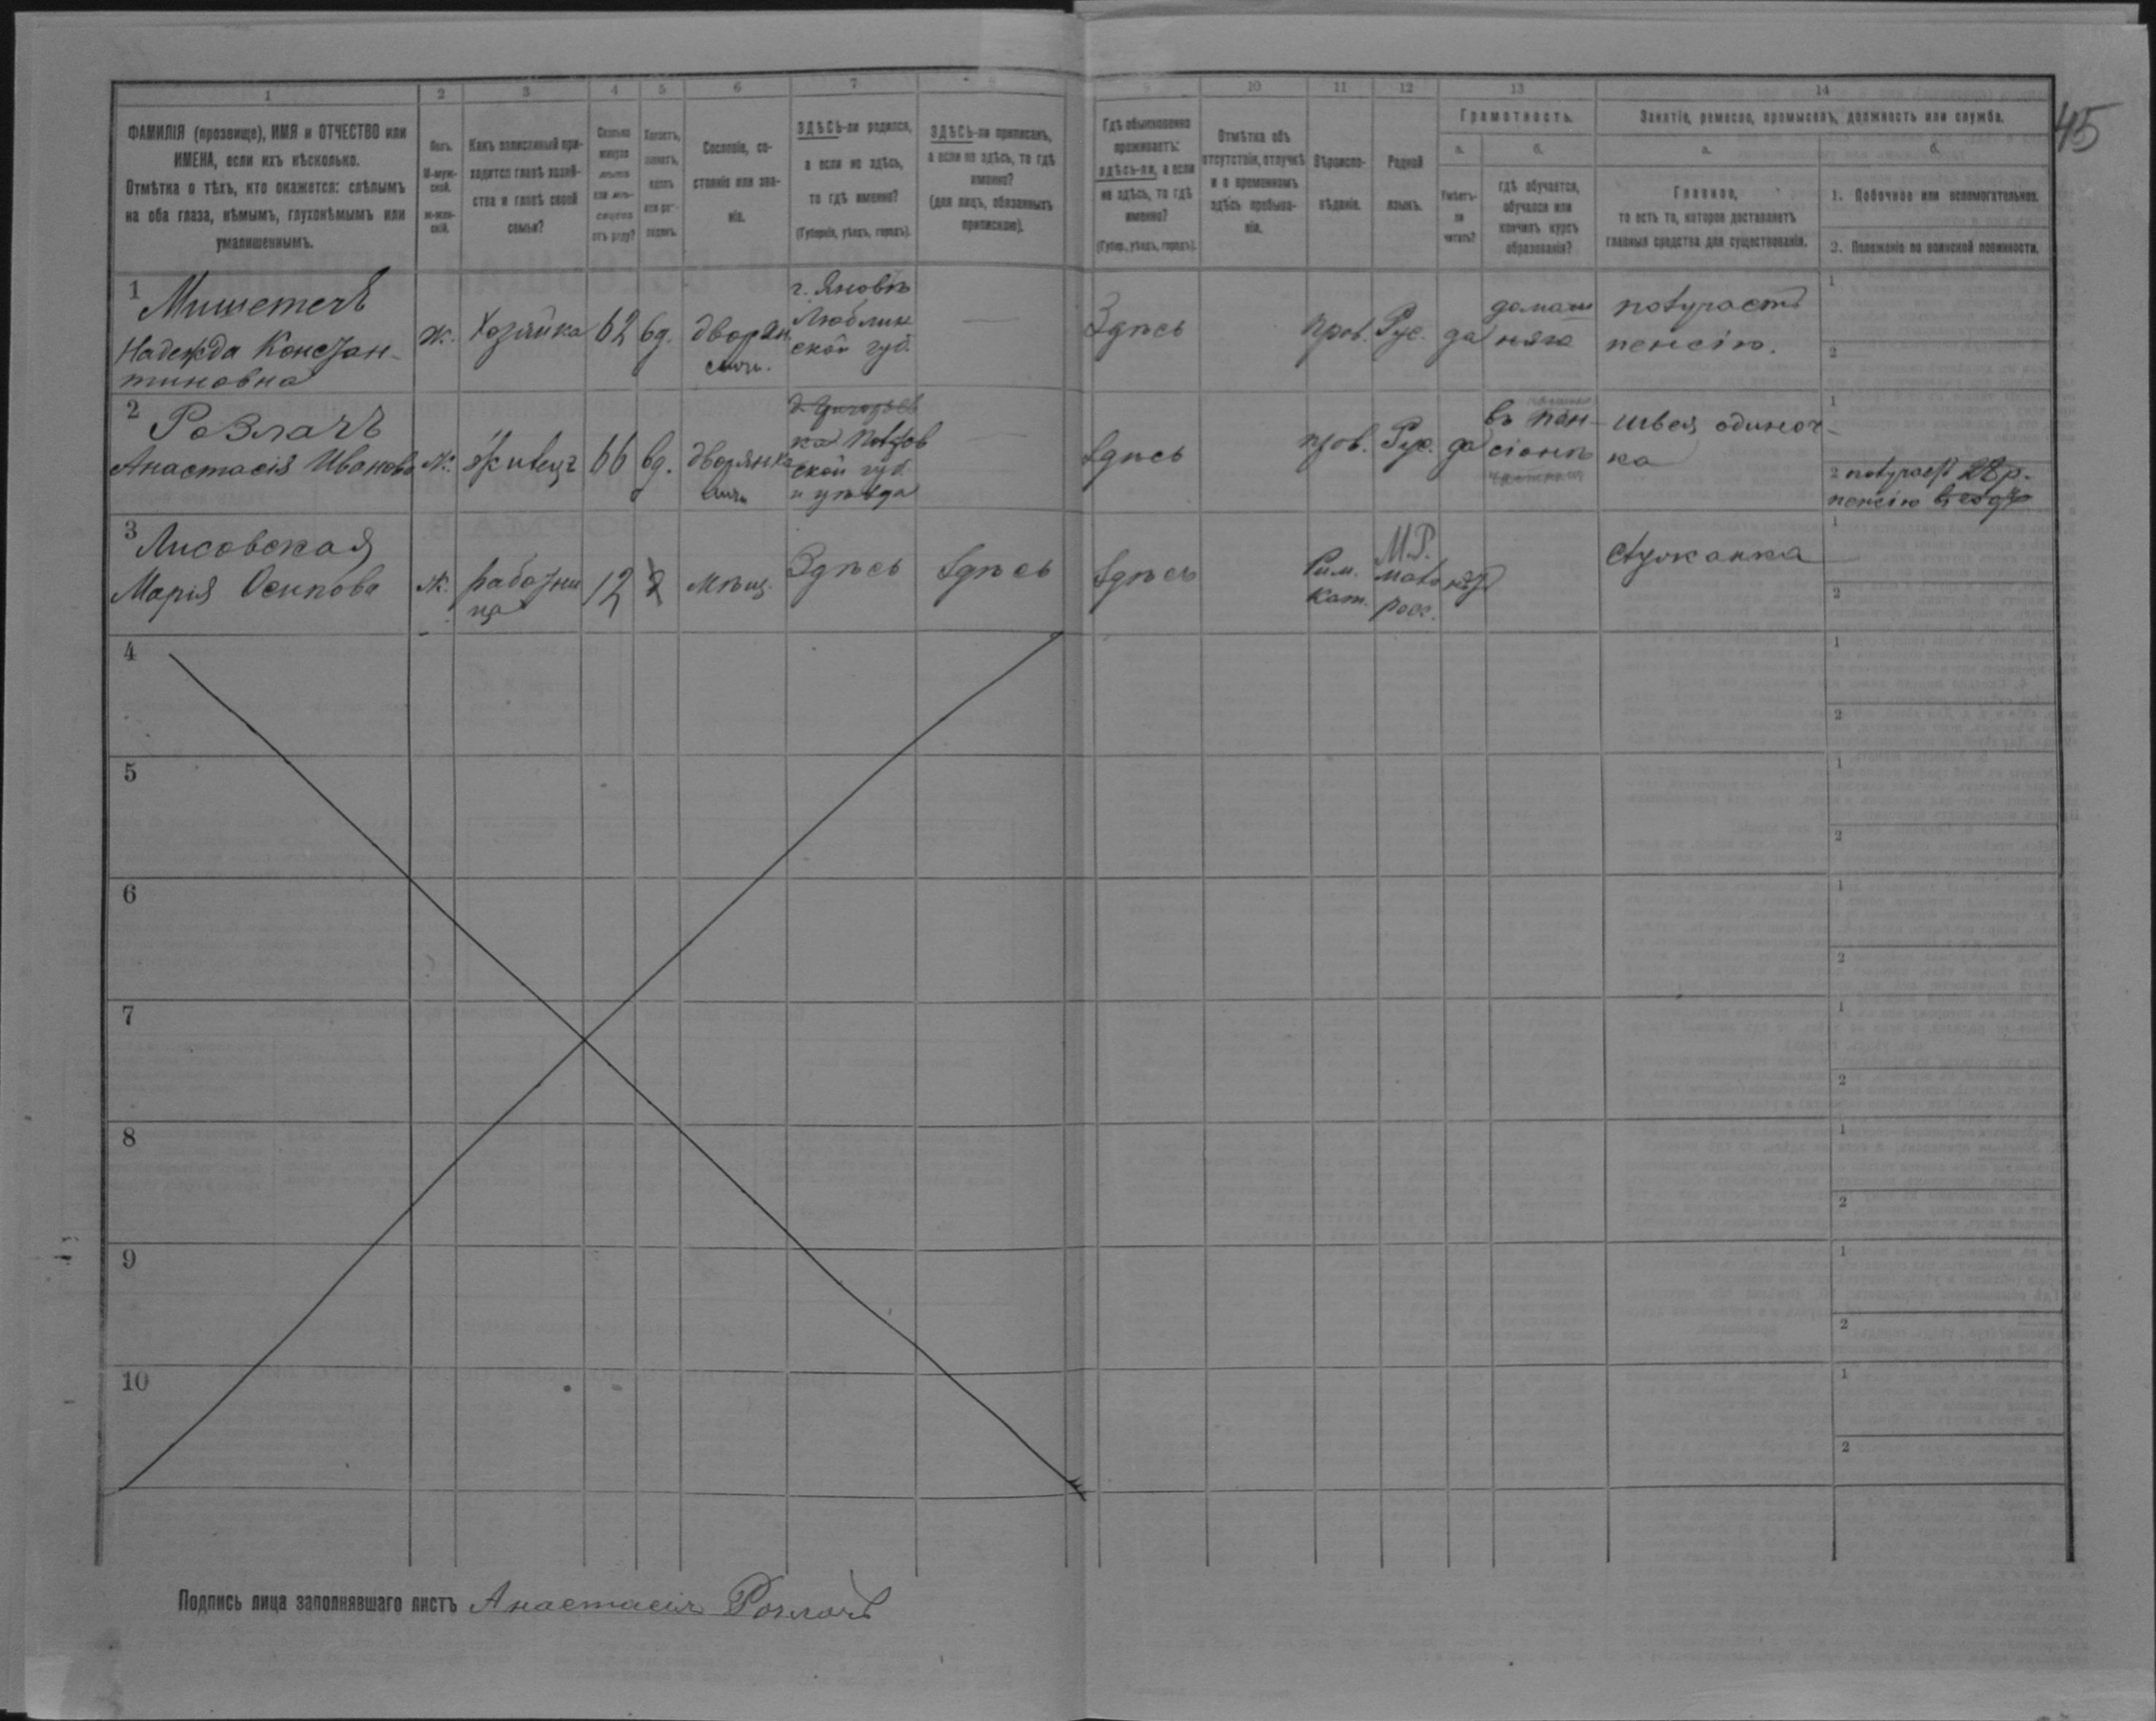 45
1 2 3 4 5 6 7 8 9 10 11 12 13 14
ФАМИЛІЯ (прозвище), ИМЯ и ОТЧЕСТВО или
ИМЕНА, если ихъ нѣсколько.
Отмѣтка о тѣхъ, кто окажется: слѣпымъ
на оба глаза, нѣмымъ, глухонѣмымъ или
умалишеннымъ.
Полъ.
М-муж-
ской.
ж-жен-
скій.
Какъ записанный при-
ходится главѣ хозяй-
ства и главѣ своей
семьи?
Сколько
минуло
лѣтъ
или мѣ-
сяцевъ
отъ роду?
Холостъ,
женатъ,
вдовъ
или раз-
веденъ.
Сословіе, со-
стояніе или зва-
ніе.
ЗДѢСЬ-ли родился,
а если не здѣсь,
то гдѣ именно?
(Губернія, уѣздъ, городъ).
ЗДѢСЬ-ли приписанъ,
а если не здѣсь, то гдѣ
именно?
(для лицъ, обязанныхъ
припискою).
Гдѣ обыкновенно
проживаетъ:
здѣсь-ли, а если
не здѣсь, то гдѣ
именно?
(Губер., уѣздъ, городъ).
Отмѣтка объ
отсутствіи, отлучкѣ
и о временномъ
здѣсь пребыва-
ніи.
Вѣроиспо-
вѣданіе.
Родной
языкъ.
Грамотность.
а.
Умѣетъ-
ли
читать?
б.
гдѣ обучается,
обучался или
кончилъ курсъ
образованія?
Занятіе, ремесло, промыселъ, должность или служба.
а.
Главное,
то есть то, которое доставляетъ
главныя средства для существованія.
б.
1. Побочное или вспомогательное.
2. Положеніе по воинской повинности.
1
Надежда Констан-
тиновна
ж.
Хозяйка
62
вд.
дворян
г. Яновъ
Люблин
ской губ.
—
Здѣсь
прав.
Рус.
да
домаш
няго
получаетъ
пенсію.
1
2
2
Розлачъ
Анастасія Иванова
ж.
жилецъ
66
вд.
дворянка
ской губ.
и уѣзда
—
Здѣсь
прав.
Рус.
да
въ пан-
сіонѣ
швея одиноч-
ка
1
2 получаетъ
пенсію
3
Лисовская
Марія Осипова
ж.
работни
ца
12
мѣщ.
Здѣсь
Здѣсь
Здѣсь
Рим.
Кат.
М.Р.
мало
росс.
нѣтъ
служанка
1
2
4
1
2
5
1
2
6
1
2
7
1
2
8
1
2
9
1
2
10
1
2
Подпись лица заполнявшаго листъ Анастасія Розлачъ